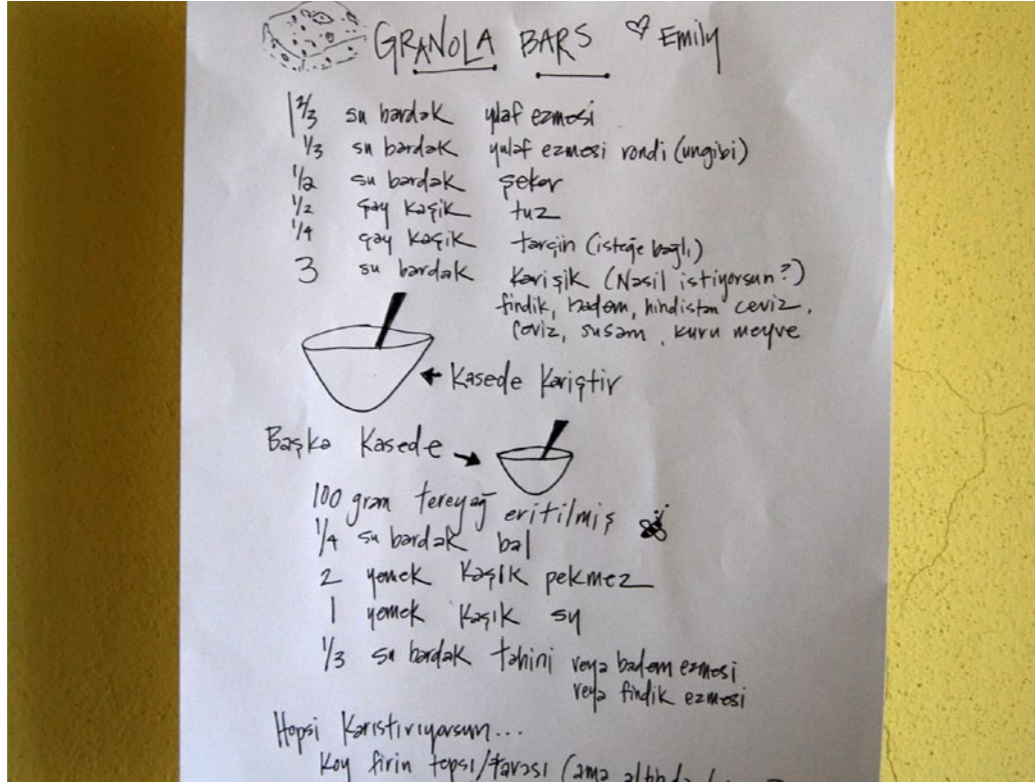 GRANOLA BARS ♡ Emily
1 2/3 su bardak yulaf ezmesi
1/3 su bardak yulaf ezmesi rondi (ungibi)
1/2 su bardak şeker
1/2 çay kaşik tuz
1/4 çay kaşik tarçin (isteğe bağlı)
3 su bardak karişik (Nasil istiyorsun?)
findik, badem, hindistan ceviz,
ceviz, susam, kuru meyve
← Kasede Kariştir
Başka Kasede →
100 gram tereyağ eritilmiş
1/4 su bardak bal
2 yemek Kaşık pekmez
1 yemek Kaşık su
1/3 su bardak tahini veya badem ezmesi
veya findik ezmesi
Hepsi Karıstırıyorsun...
Koy firin tepsi/tavası (ama altında